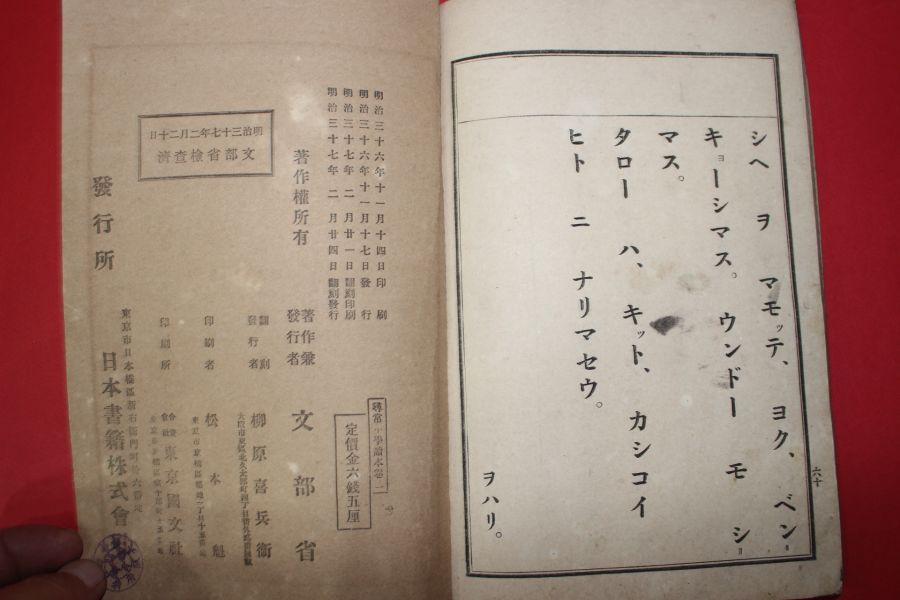 シヘ ヲ マモッテ、ヨク、ベン
キョーシマス。ウンドー モ シ
マス。
タロー ハ、キット、カシコイ
ヒト ニ ナリマセウ。
ヲハリ。
六十
明治三十六年十一月十四日印刷
明治三十六年十一月十七日發行
明治三十七年二月廿一日翻刻印刷
明治三十七年二月廿四日翻刻發行
著作權所有
明治三十七年二月二十日
文部省檢査濟
尋常小學讀本卷二
定價金六錢五厘
著作兼發行者 文部省
翻刻發行者 柳原喜兵衞
印刷者 松本魁
印刷所 合資會社 東京國文社
發行所
東京市日本橋區新右衞門町
日本書籍株式會